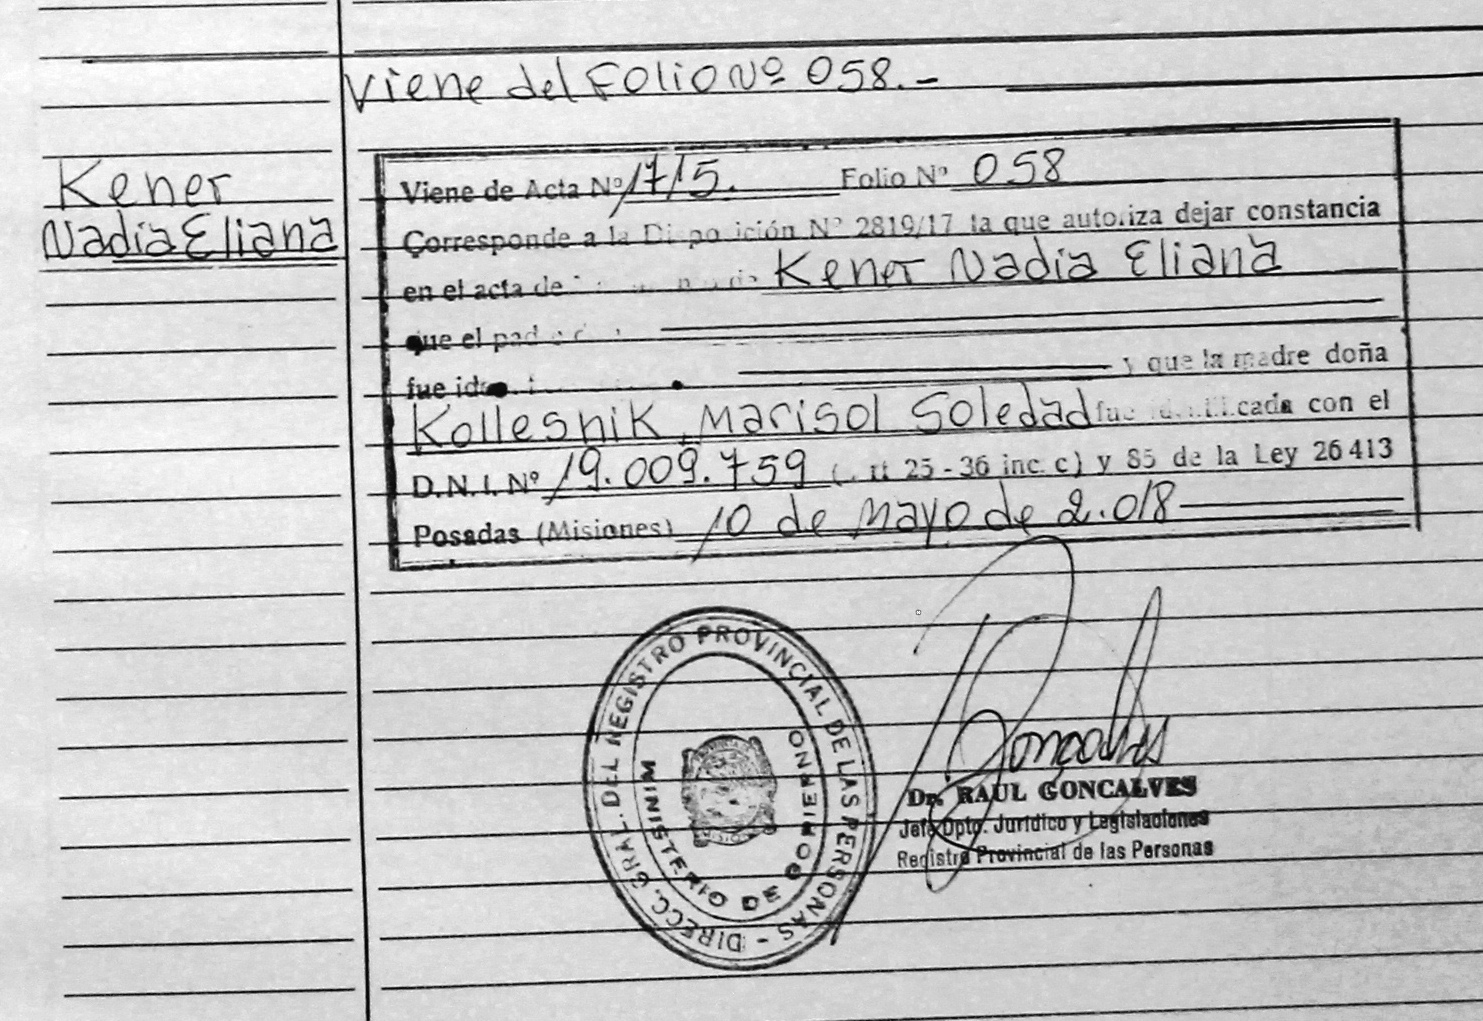 Viene del Folio Nº 058.-
Kener
Nadia Eliana
Viene de Acta Nº 1715. Folio Nº 058
Corresponde a la Disposición Nº 2819/17 la que autoriza dejar constancia
en el acta de Kener Nadia Eliana
que el padre
fue y que la madre doña
Kollesnik, Marisol Soledad fue identificada con el
D.N.I. Nº 19.009.759 ( 25 - 36 inc. c) y 85 de la Ley 26413
Posadas (Misiones) 10 de Mayo de 2.018
DIRECC. GRAL. DEL REGISTRO PROVINCIAL DE LAS PERSONAS -
MINISTERIO DE GOBIERNO
Goncalves
Dr. RAUL GONCALVES
Jefe Dpto. Jurídico y Legislaciones
Registro Provincial de las Personas